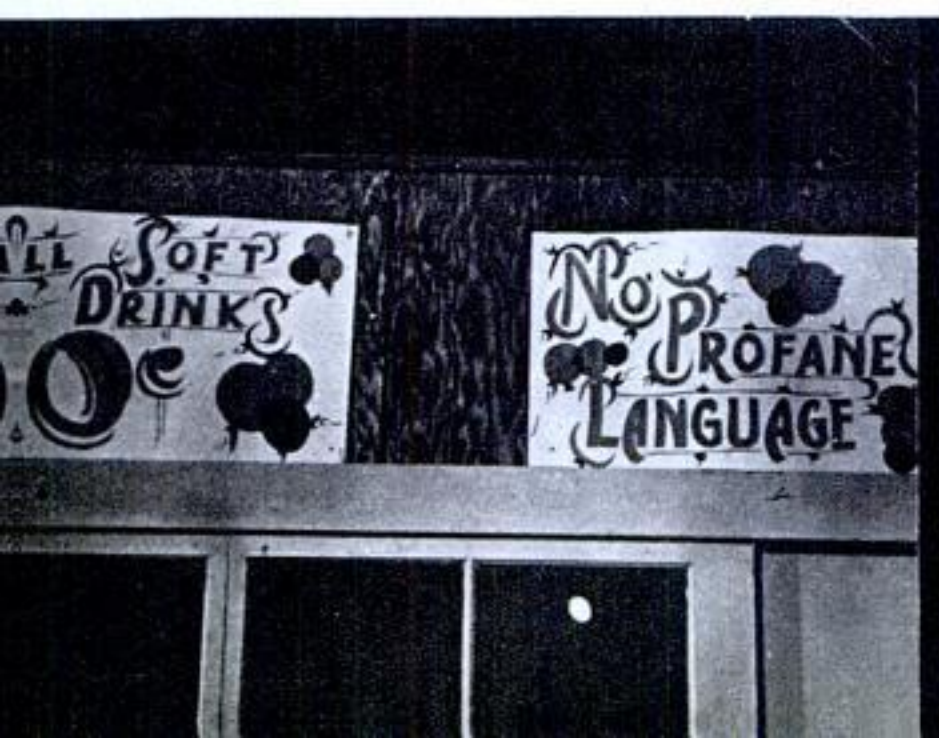 ALL SOFT
DRINKS
0¢
NO
PROFANE
LANGUAGE